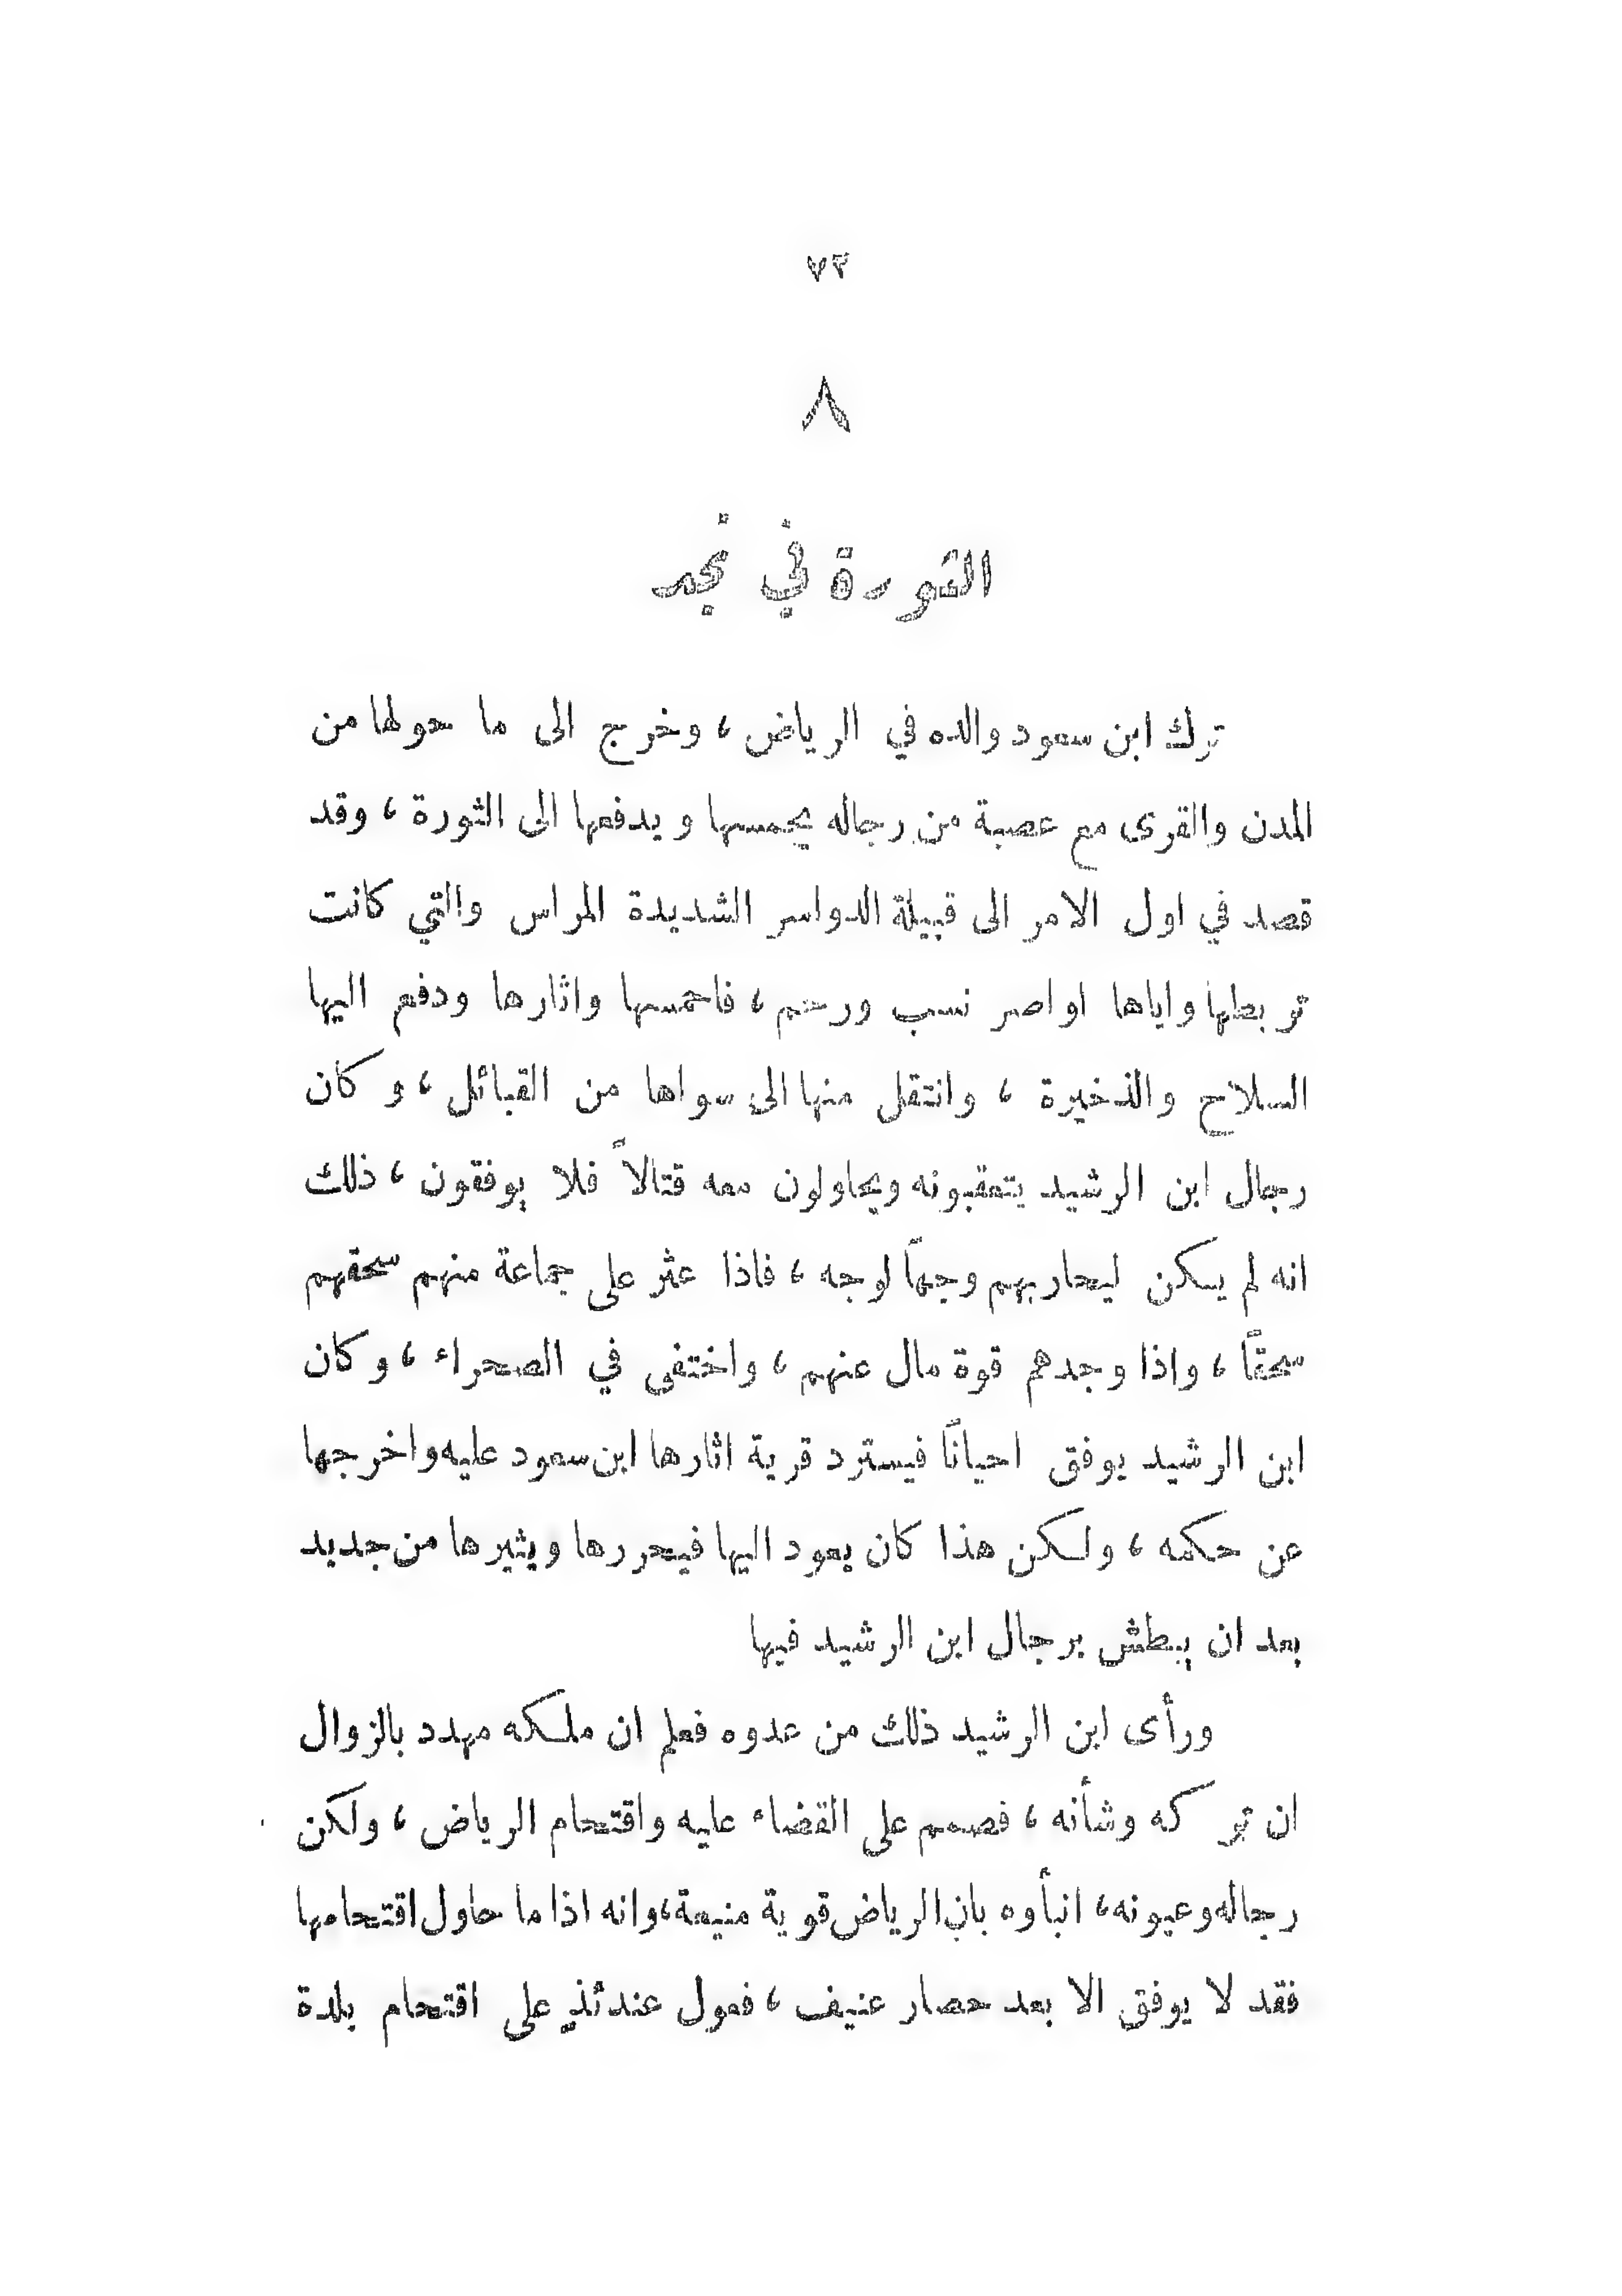 ٧٣
٨
الثورة في نجد
ترك ابن سعود والده في الرياض ، وخرج الى ما حولها من
المدن والقرى مع عصبة من رجاله يحمسها ويدفعها الى الثورة ، وقد
قصد في اول الامر الى قبيلة الدواسر الشديدة المراس والتي كانت
تربطها واياها اواصر نسب ورحم ، فاحمسها واثارها ودفع اليها
السلاح والذخيرة ، وانتقل منها الى سواها من القبائل ، وكان
رجال ابن الرشيد يتعقبونه ويحاولون معه قتالاً فلا يوفقون ، ذلك
انه لم يكن ليحاربهم وجهاً لوجه ، فاذا عثر على جماعة منهم سحقهم
سحقاً ، واذا وجدهم قوة مال عنهم ، واختفى في الصحراء ، وكان
ابن الرشيد يوفق احياناً فيسترد قرية اثارها ابن سعود عليه واخرجها
عن حكمه ، ولكن هذا كان يعود اليها فيحررها ويثيرها من جديد
بعد ان يبطش برجال ابن الرشيد فيها
ورأى ابن الرشيد ذلك من عدوه فعلم ان ملكه مهدد بالزوال
ان تركه وشأنه ، فصمم على القضاء عليه واقتحام الرياض ، ولكن
رجاله وعيونه ، انبأوه بان الرياض قوية منيعة ، وانه اذا ما حاول اقتحامها
فقد لا يوفق الا بعد حصار عنيف ، فعول عندئذٍ على اقتحام بلدة